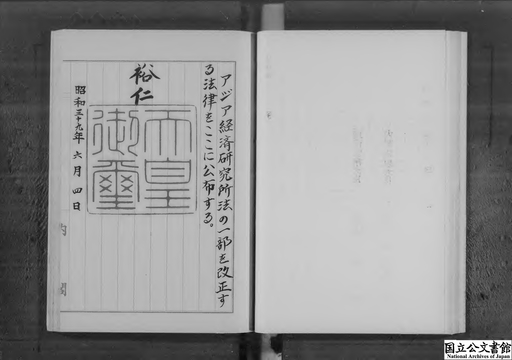 アジア経済研究所法の一部を改正す
る法律をここに公布する。
裕仁
天皇
御璽
昭和三十九年六月四日
内閣
国立公文書館
National Archives of Japan